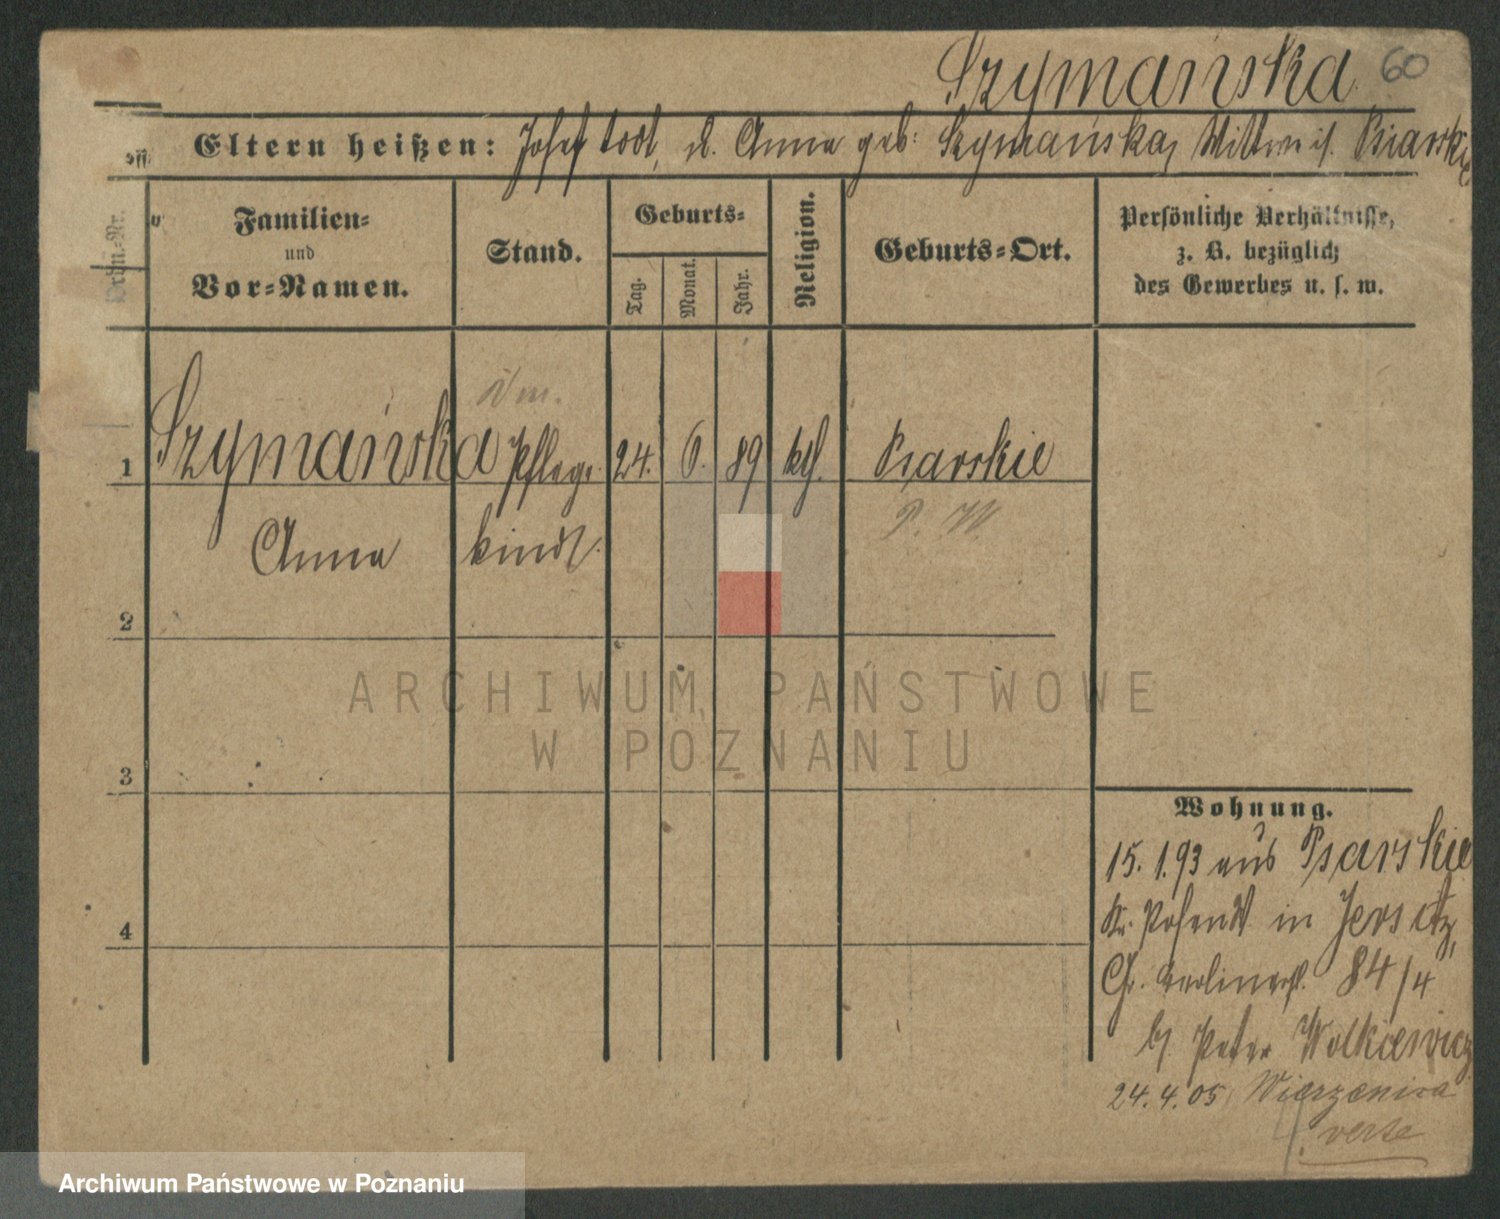 Szymańska 60
Eltern heißen: Josef todt, d. Anna geb: Szymańska, Wittwe i.
Ordn.-Nr.
Familien-
und
Vor-Namen.
Stand.
Geburts-
Tag.
Monat.
Jahr.
Religion.
Geburts-Ort.
Persönliche Verhältnisse,
z. B. bezüglich
des Gewerbes u. s. w.
1 Szymańska Pflege- 24. 6. 89 kth. Psarskie
Anna kind
P. W.
2
3
4
Wohnung.
15. 1. 93 aus Psarskie
Kr. Posen W. in Jersitz,
Gr. Berlinerst. 84/4
b/ Peter Wolkiewicz
24. 4. 05
verte
ARCHIWUM PAŃSTWOWE
W POZNANIU
Archiwum Państwowe w Poznaniu